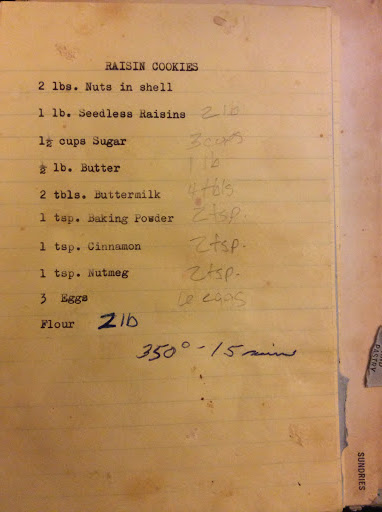 RAISIN COOKIES
2 lbs. Nuts in shell
1 lb. Seedless Raisins 2 lb
1½ cups Sugar 3 cups
½ lb. Butter 1 lb
2 tbls. Buttermilk 4 tbls
1 tsp. Baking Powder 2 tsp.
1 tsp. Cinnamon 2 tsp.
1 tsp. Nutmeg 2 tsp.
3 Eggs 6 eggs
Flour 2 lb
350° - 15 min
PASTRY
SUNDRIES